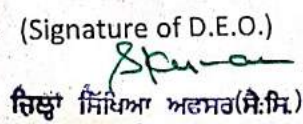 (Signature of D.E.O.)
SKumar
ਜ਼ਿਲ੍ਹਾ ਸਿੱਖਿਆ ਅਫਸਰ(ਸੈ:ਸਿ.)